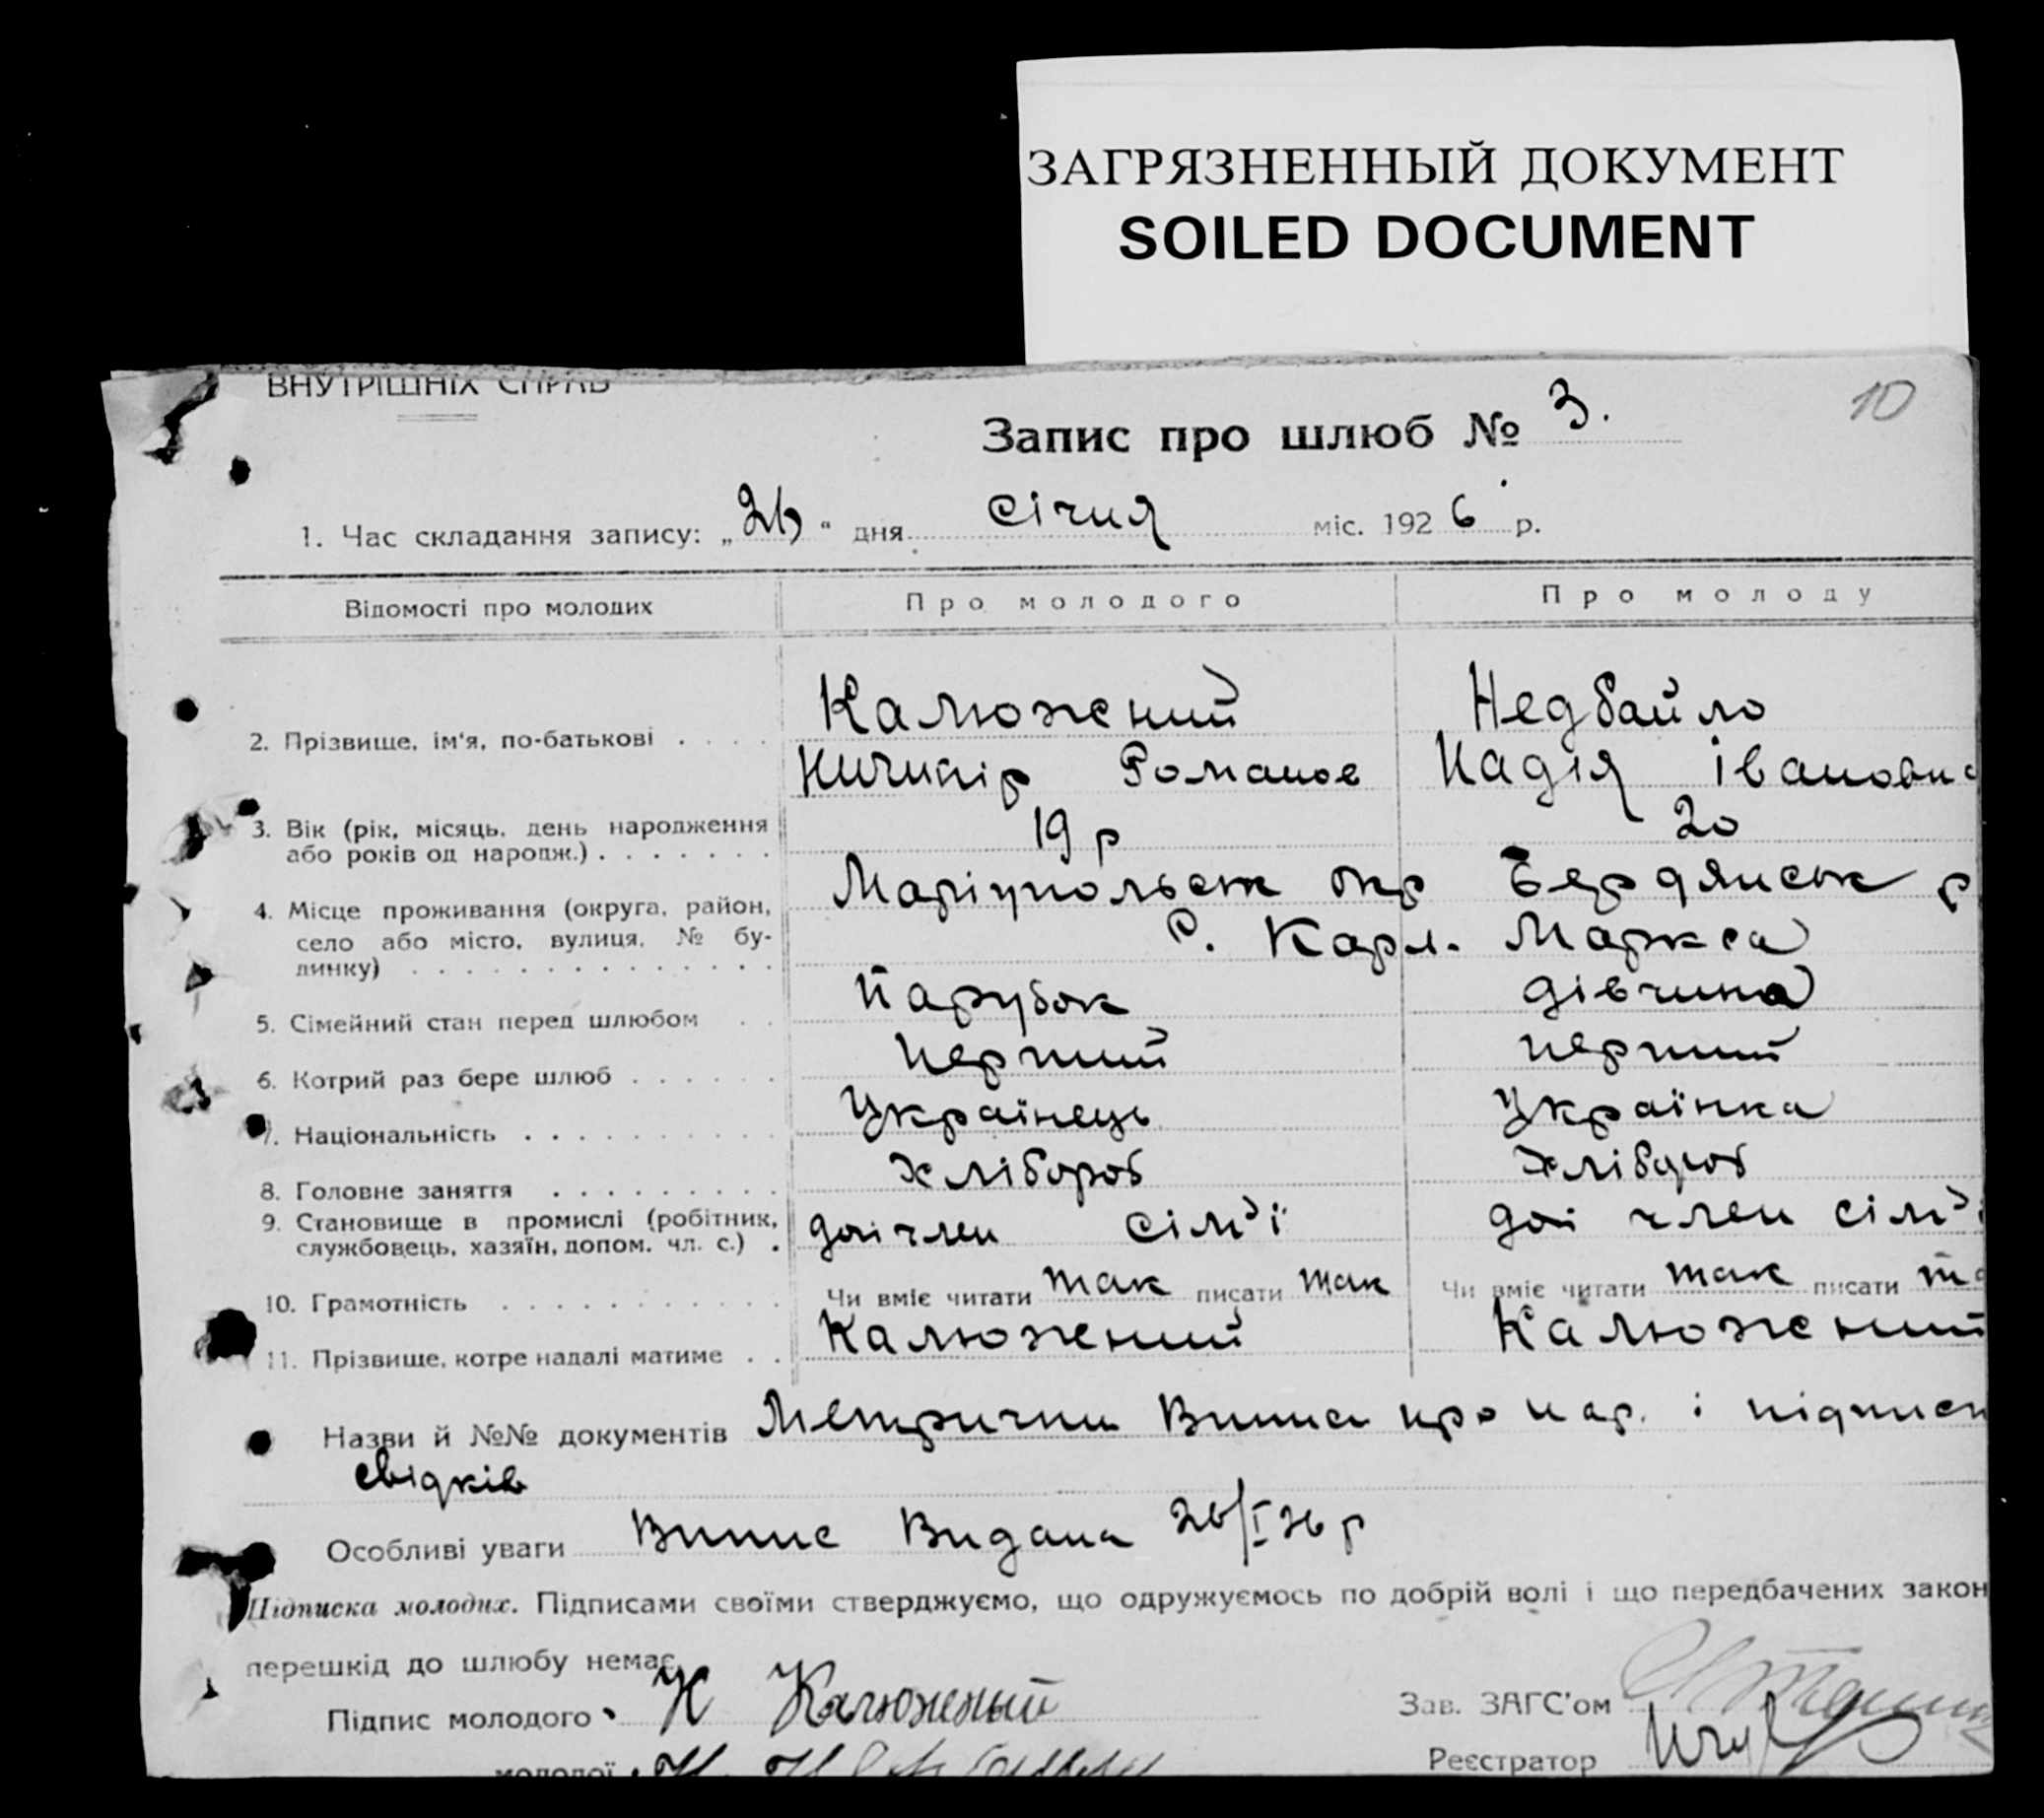 ЗАГРЯЗНЕННЫЙ ДОКУМЕНТ
SOILED DOCUMENT
ВНУТРІШНІХ СПРАВ
10
Запис про шлюб № 3.
1. Час складання запису: „26“ дня січня міс. 1926 р.
Відомості про молодих Про молодого Про молоду
Калюжений Недбайло
2. Прізвище, ім'я, по-батькові
Ничипір Романов Надія Івановн
3. Вік (рік, місяць, день народження 19 р 20
або років од народж.)
Маріупольськ окр Бердянськ р
4. Місце проживання (округа, район,
село або місто, вулиця, № бу- с. Карл. Маркса
динку)
5. Сімейний стан перед шлюбом Парубок дівчина
6. Котрий раз бере шлюб перший перший
7. Національність Українець Українка
8. Головне заняття хлібороб хлібороб
9. Становище в промислі (робітник, член сім'ї член сім'ї
службовець, хазяїн, допом. чл. с.)
10. Грамотність Чи вміє читати так писати так Чи вміє читати так писати та
11. Прізвище, котре надалі матиме Калюжений Калюжений
Назви й №№ документів Метрични Виписи про нар. і підписк
свідків
Особливі уваги Випис Видана 26/I 26 р
Підписка молодих. Підписами своїми стверджуємо, що одружуємось по добрій волі і що передбачених закон
перешкід до шлюбу немає.
Підпис молодого Н Калюженый Зав. ЗАГС'ом
молодої Н. Реєстратор